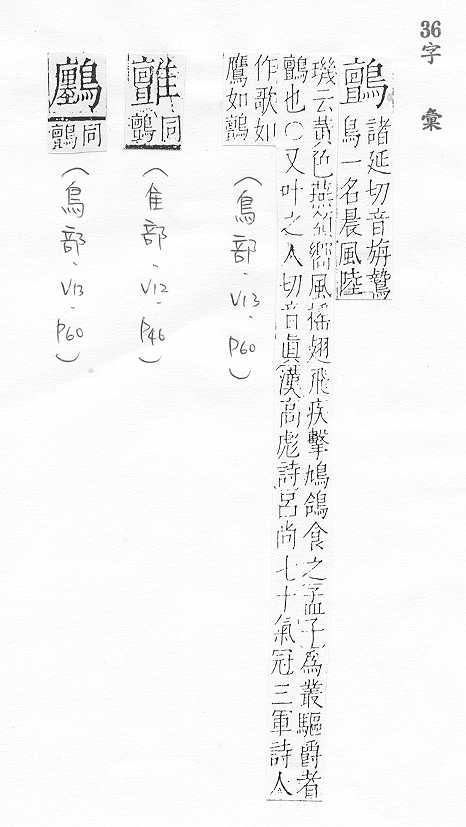 36字 彙
鸇
諸延切音旃鷙
鳥一名晨風陸
璣云黃色燕頷嚮風搖翅飛疾擊鳩鴿食之孟子爲叢驅爵者
鸇也〇又叶之人切音眞漢高彪詩呂尚七十氣冠三軍詩人
作歌如
鷹如鸇
(鳥部.V13.P60)
同
鸇
(隹部.V12.P46)
同
鸇
(鳥部.V13.P60)